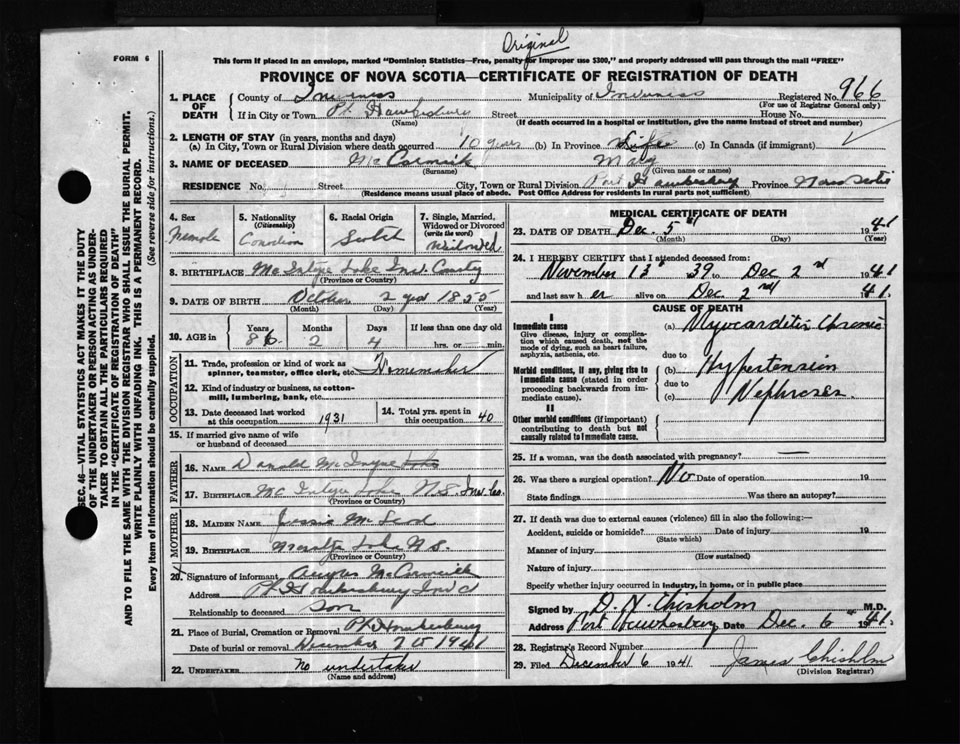 Original
FORM 6
This form if placed in an envelope, marked "Dominion Statistics—Free, penalty for improper use $300," and properly addressed will pass through the mail "FREE"
PROVINCE OF NOVA SCOTIA—CERTIFICATE OF REGISTRATION OF DEATH
1. PLACE OF DEATH { County of Inverness Municipality of Inverness Registered No. 966
(For use of Registrar General only)
If in City or Town Pt Hawkesbury Street House No.
(Name) (If death occurred in a hospital or institution, give the name instead of street and number)
2. LENGTH OF STAY (in years, months and days)
(a) In City, Town or Rural Division where death occurred 10 years (b) In Province Life (c) In Canada (if immigrant)
3. NAME OF DECEASED McCormick Mary
(Surname) (Given name or names)
RESIDENCE No. Street City, Town or Rural Division Port Hawkesbury Province Nova Scotia
(Residence means usual place of abode. Post Office Address for residents in rural parts not sufficient).
SEC. 46—VITAL STATISTICS ACT MAKES IT THE DUTY
OF THE UNDERTAKER OR PERSON ACTING AS UNDER-
TAKER TO OBTAIN ALL THE PARTICULARS REQUIRED
IN THE "CERTIFICATE OF REGISTRATION OF DEATH"
AND TO FILE THE SAME WITH THE DIVISION REGISTRAR WHO SHALL ISSUE THE BURIAL PERMIT.
WRITE PLAINLY WITH UNFADING INK. THIS IS A PERMANENT RECORD.
Every item of Information should be carefully supplied. (See reverse side for instructions.)
4. Sex Female
5. Nationality (Citizenship) Canadian
6. Racial Origin Scotch
7. Single, Married, Widowed or Divorced (write the word) Widowed
8. BIRTHPLACE McIntyre Lake Inv. County
(Province or Country)
9. DATE OF BIRTH October 2nd 1855
(Month) (Day) (Year)
10. AGE in Years 86 Months 2 Days 4 If less than one day old hrs. or min.
OCCUPATION
11. Trade, profession or kind of work as spinner, teamster, office clerk, etc. Homemaker
12. Kind of industry or business, as cotton-mill, lumbering, bank, etc.
13. Date deceased last worked at this occupation 1931
14. Total yrs. spent in this occupation 40
15. If married give name of wife or husband of deceased
FATHER
16. NAME Donald McIntyre
17. BIRTHPLACE McIntyre Lake N.S. Inv. Co.
(Province or Country)
MOTHER
18. MAIDEN NAME Jessie McLeod
19. BIRTHPLACE Lake N.S.
(Province or Country)
20. Signature of informant Angus McCormick
Address Pt Hawkesbury
Relationship to deceased Son
21. Place of Burial, Cremation or Removal Pt Hawkesbury
Date of burial or removal December 1941
22. UNDERTAKER no undertaker
(Name and address)
MEDICAL CERTIFICATE OF DEATH
23. DATE OF DEATH Dec. 5th 1941
(Month) (Day) (Year)
24. I HEREBY CERTIFY that I attended deceased from:
November 13 39 to Dec 2nd 1941
and last saw her alive on Dec 2nd 1941.
CAUSE OF DEATH
I
Immediate cause
Give disease, injury or complication which caused death, not the mode of dying, such as heart failure, asphyxia, asthenia, etc.
(a) Myocarditis Chronic
due to
Morbid conditions, if any, giving rise to immediate cause (stated in order proceeding backwards from immediate cause).
(b) Hypertension
due to
(c) Nephroses.
II
Other morbid conditions (if important) contributing to death but not causally related to immediate cause.
25. If a woman, was the death associated with pregnancy? —
26. Was there a surgical operation? No Date of operation 19
State findings Was there an autopsy?
27. If death was due to external causes (violence) fill in also the following:—
Accident, suicide or homicide? Date of injury 19
(State which)
Manner of injury
(How sustained)
Nature of injury
Specify whether injury occurred in industry, in home, or in public place
Signed by D. N. Chisholm M.D.
Address Port Hawkesbury Date Dec. 6 1941.
28. Registrar's Record Number
29. Filed December 6 1941 James Chisholm
(Division Registrar)